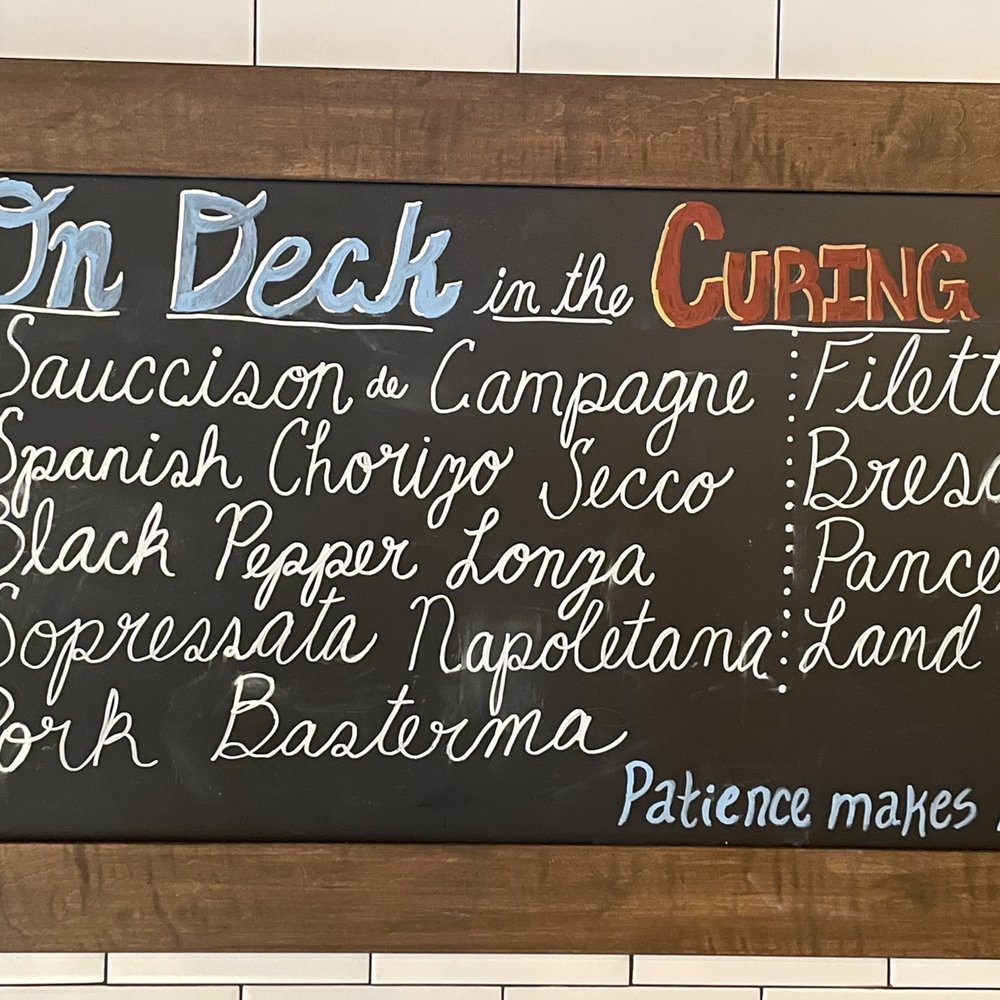 On Deck in the CURING
Sauccison de Campagne
Spanish Chorizo Secco
Black Pepper Lonza
Sopressata Napoletana
Pork Basterma
Filett
Bresa
Pance
Land
Patience makes